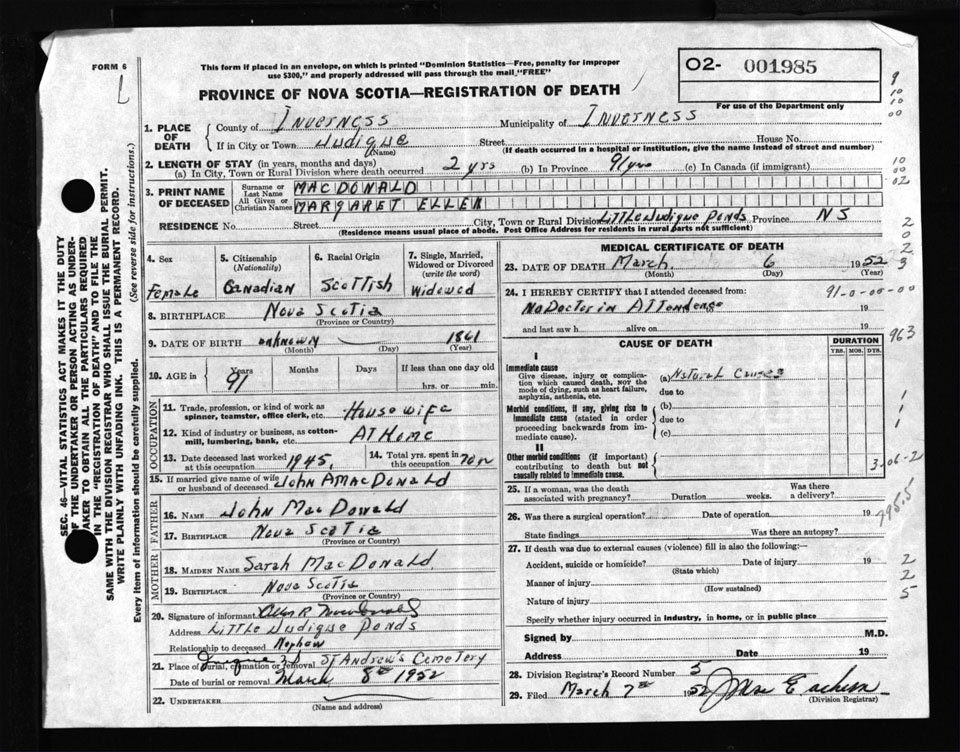 FORM 6
This form if placed in an envelope, on which is printed "Dominion Statistics—Free, penalty for improper
use $300," and properly addressed will pass through the mail "FREE"
PROVINCE OF NOVA SCOTIA—REGISTRATION OF DEATH
02- 001985
For use of the Department only
SEC. 46—VITAL STATISTICS ACT MAKES IT THE DUTY
OF THE UNDERTAKER OR PERSON ACTING AS UNDER-
TAKER TO OBTAIN ALL THE PARTICULARS REQUIRED
IN THE "REGISTRATION OF DEATH" AND TO FILE THE
SAME WITH THE DIVISION REGISTRAR WHO SHALL ISSUE THE BURIAL PERMIT.
WRITE PLAINLY WITH UNFADING INK. THIS IS A PERMANENT RECORD.
Every item of information should be carefully supplied. (See reverse side for instructions.)
1. PLACE OF DEATH
County of Inverness Municipality of Inverness
If in City or Town Judique Street House No.
(Name) (If death occurred in a hospital or institution, give the name instead of street and number)
2. LENGTH OF STAY (in years, months and days)
(a) In City, Town or Rural Division where death occurred 2 yrs (b) In Province 91 yrs (c) In Canada (if immigrant)
3. PRINT NAME OF DECEASED
Surname or Last Name MACDONALD
All Given or Christian Names MARGARET ELLEN
RESIDENCE No. Street City, Town or Rural Division Little Judique Ponds Province NS
(Residence means usual place of abode. Post Office Address for residents in rural parts not sufficient)
4. Sex
Female
5. Citizenship
(Nationality)
Canadian
6. Racial Origin
Scottish
7. Single, Married, Widowed or Divorced
(write the word)
Widowed
8. BIRTHPLACE Nova Scotia
(Province or Country)
9. DATE OF BIRTH unknown 1861
(Month) (Day) (Year)
10. AGE in Years Months Days If less than one day old
91 hrs. or min.
OCCUPATION
11. Trade, profession, or kind of work as
spinner, teamster, office clerk, etc. Housewife
12. Kind of industry or business, as cotton-
mill, lumbering, bank, etc. At Home
13. Date deceased last worked at this occupation 1945
14. Total yrs. spent in this occupation 70 yr
15. If married give name of wife
or husband of deceased John A MacDonald
FATHER
16. NAME John MacDonald
17. BIRTHPLACE Nova Scotia
(Province or Country)
MOTHER
18. MAIDEN NAME Sarah MacDonald
19. BIRTHPLACE Nova Scotia
(Province or Country)
20. Signature of informant
Address Little Judique Ponds
Relationship to deceased Nephew
21. Place of burial, cremation or removal St Andrew's Cemetery
Date of burial or removal March 8th 1952
22. UNDERTAKER
(Name and address)
MEDICAL CERTIFICATE OF DEATH
23. DATE OF DEATH March 6 1952
(Month) (Day) (Year)
24. I HEREBY CERTIFY that I attended deceased from:
No Doctor in Attendence 19
and last saw h alive on 19
CAUSE OF DEATH
DURATION
YRS. MOS. DYS.
I
Immediate cause
Give disease, injury or complica-
tion which caused death, NOT the
mode of dying, such as heart failure,
asphyxia, asthenia, etc.
(a) Natural Causes
due to
Morbid conditions, if any, giving rise to
immediate cause (stated in order
proceeding backwards from im-
mediate cause).
(b)
due to
(c)
II
Other morbid conditions (if important)
contributing to death but not
causally related to immediate cause.
25. If a woman, was the death
associated with pregnancy? Duration weeks. Was there
a delivery?
26. Was there a surgical operation? Date of operation 19
State findings Was there an autopsy?
27. If death was due to external causes (violence) fill in also the following:—
Accident, suicide or homicide? Date of injury 19
(State which)
Manner of injury
(How sustained)
Nature of injury
Specify whether injury occurred in industry, in home, or in public place
Signed by M.D.
Address Date 19
28. Division Registrar's Record Number 5
29. Filed March 7th 1952
(Division Registrar)
9
10
10
00
10
00
02
2
0
2
3
91-0-00-00
963
1
1
1
3-06-2
795.5
2
2
5